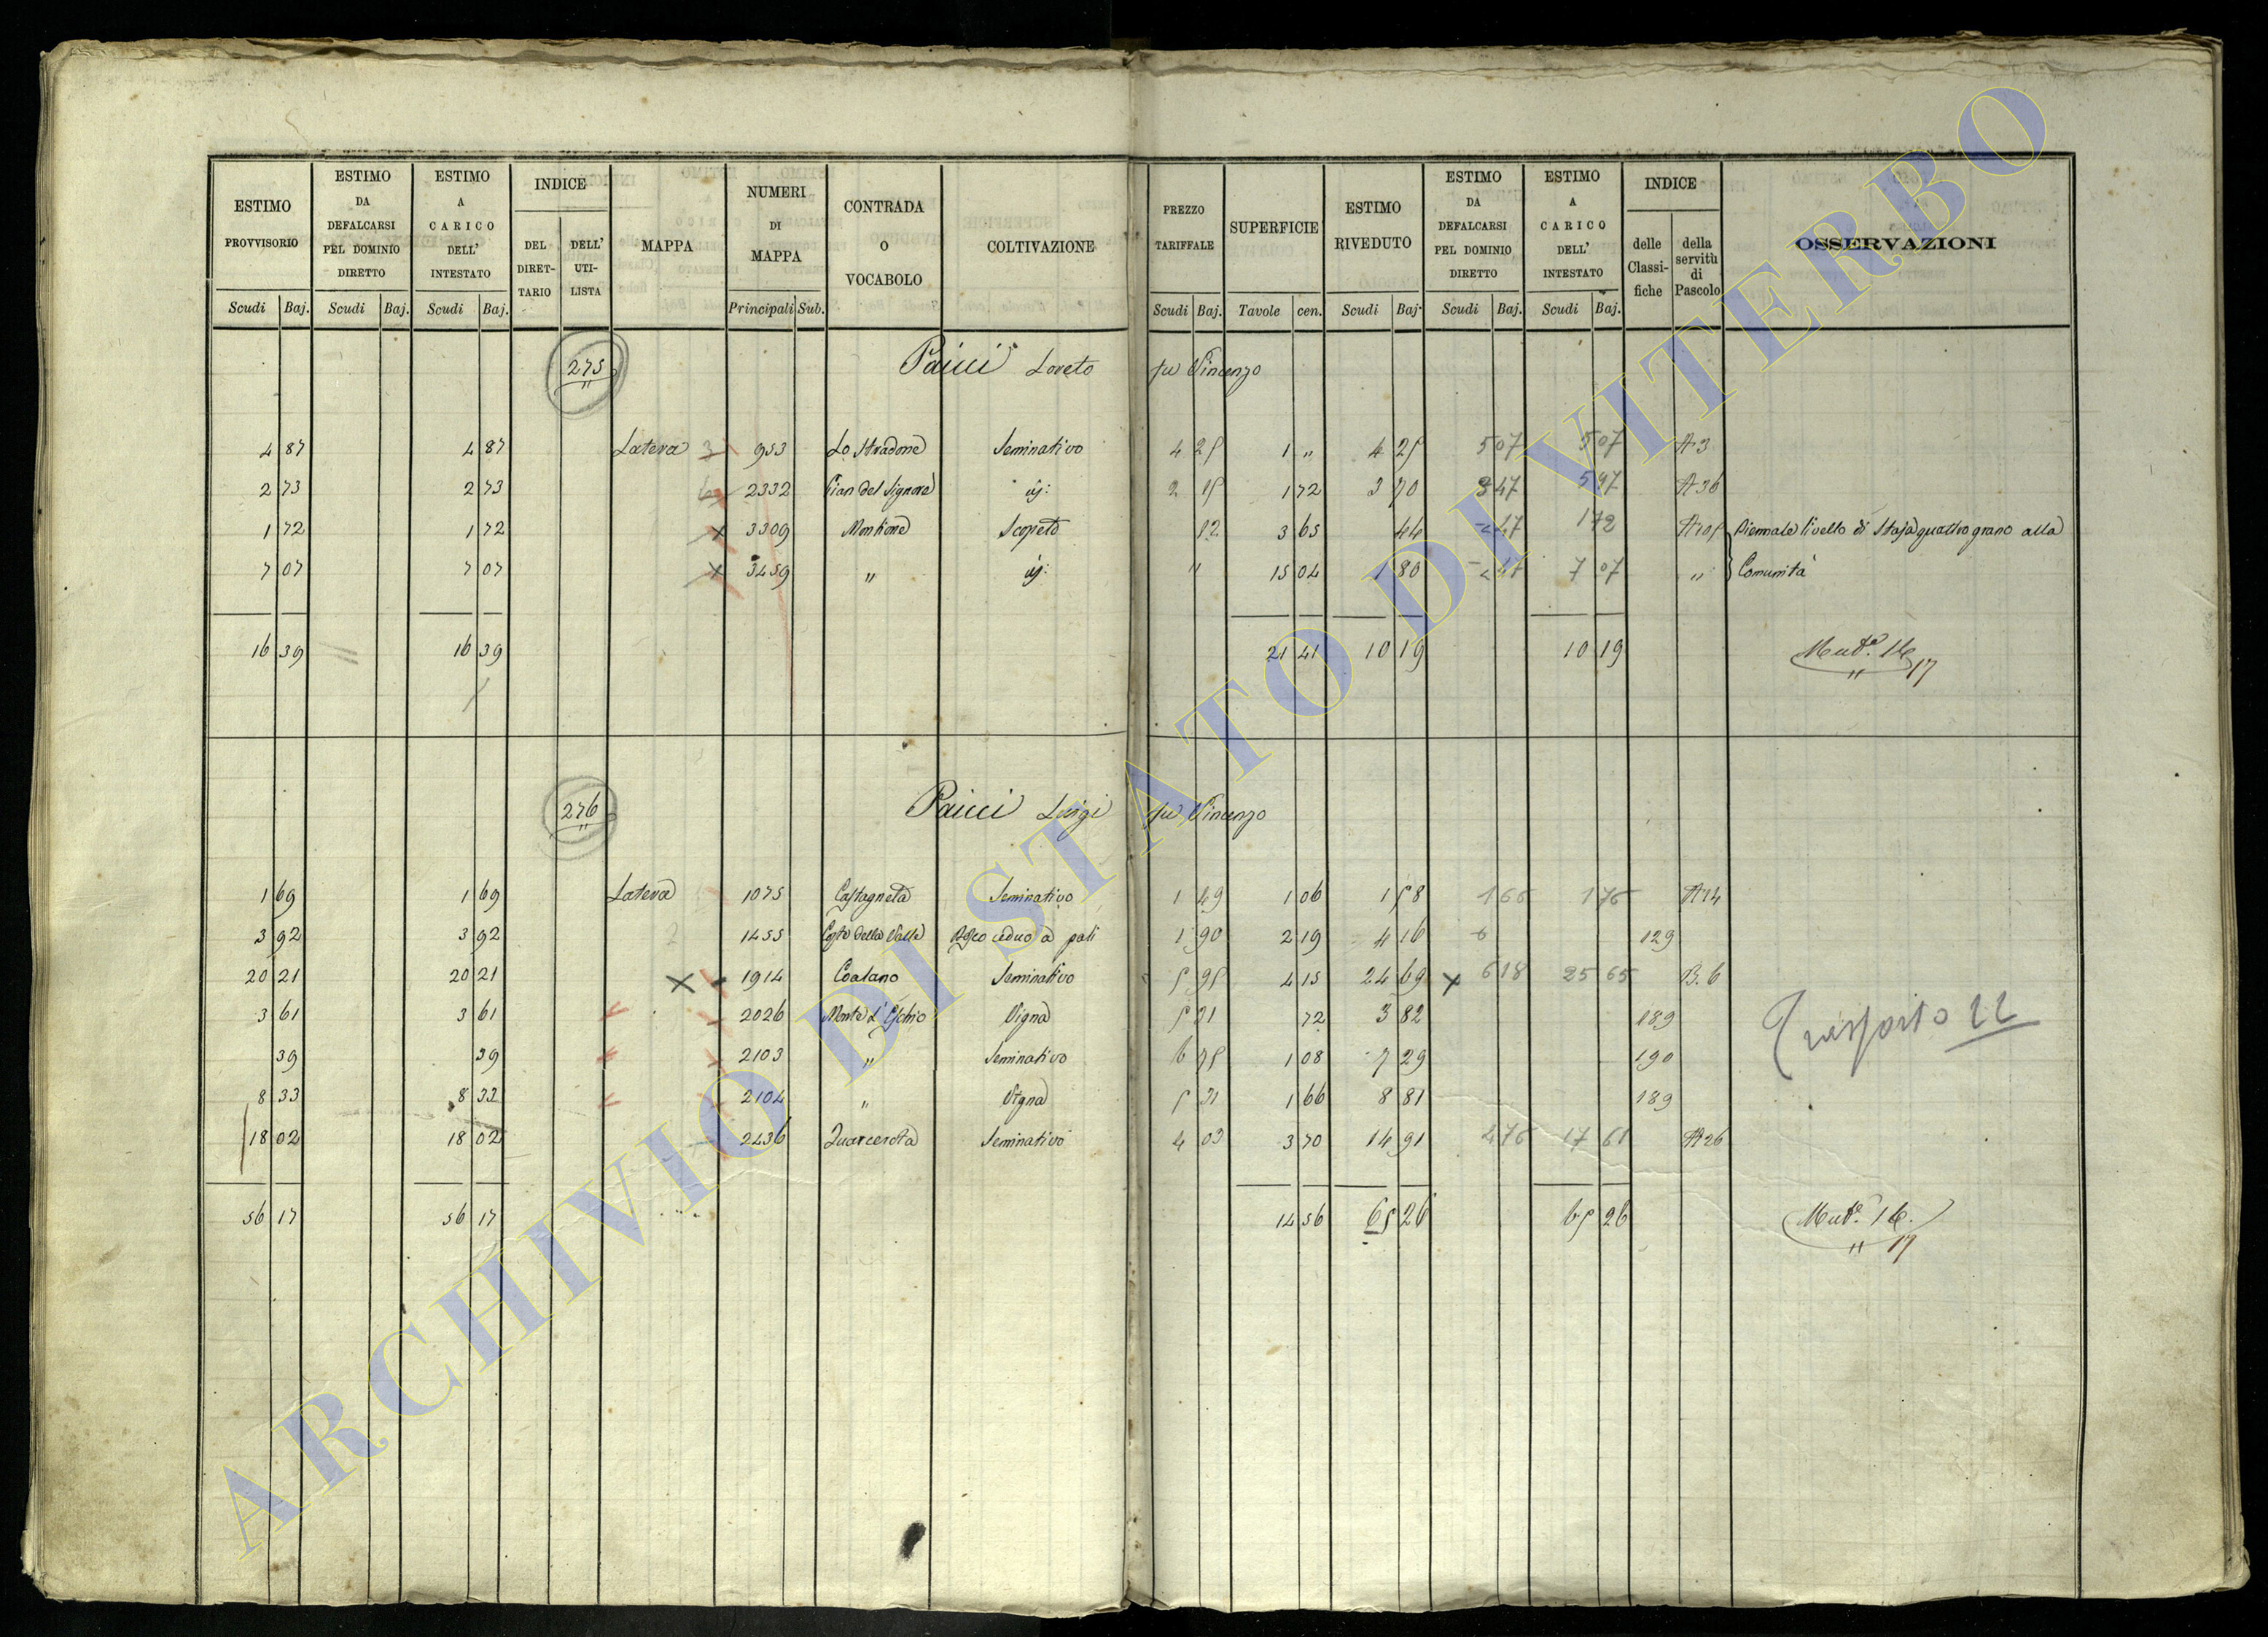 ESTIMO PROVVISORIO | ESTIMO DA DEFALCARSI PEL DOMINIO DIRETTO | ESTIMO A CARICO DELL' INTESTATO | INDICE DEL DIRET-TARIO | DELL' UTI-LISTA | MAPPA | NUMERI DI MAPPA | CONTRADA O VOCABOLO | COLTIVAZIONE | PREZZO TARIFFALE | SUPERFICIE | ESTIMO RIVEDUTO | ESTIMO DA DEFALCARSI PEL DOMINIO DIRETTO | ESTIMO A CARICO DELL' INTESTATO | INDICE delle Classi-fiche | della servitù di Pascolo | OSSERVAZIONI
Scudi Baj. Scudi Baj. Scudi Baj. Principali Sub. Scudi Baj. Tavole cen. Scudi Baj. Scudi Baj. Scudi Baj.
275 Paicci Loreto fu Vincenzo
4 87 4 87 Latera 3 953 Lo Stradone Seminativo 4 25 1 " 4 25 5 07 5 07 A 3
2 73 2 73 2332 Pian del Signore id: 2 15 1 72 3 70 3 47 5 97 A 36
1 72 1 72 x 3309 Montione Scopeto 12 3 65 44 1 72 Biennale livello di Staja quattro grano alla
7 07 7 07 x 3459 " id: " 15 04 1 80 7 07 " Comunità
16 39 16 39 21 41 10 19 10 19 Mut.e 16
" 17
276 Paicci Luigi fu Vincenzo
1 69 1 69 Latera 1075 Castagneta Seminativo 1 49 1 06 1 58 1 66 1 76 A 14
3 92 3 92 1455 Costa della Valle Bosco ceduo a pali 1 90 2 19 4 16 129
20 21 20 21 x 1914 Coatano Seminativo 5 95 4 15 24 69 x 6 18 25 65 B. 6
3 61 3 61 2026 Monte l'Eschio Vigna 5 31 72 3 82 189
Trasporto 22
39 39 2103 " Seminativo 6 75 1 08 7 29 190
8 33 8 33 2104 " Vigna 5 31 1 66 8 81 189
18 02 18 02 2436 Quarcerota Seminativo 4 03 3 70 14 91 4 76 17 61 A 26
56 17 56 17 14 56 65 26 65 26 Mut.e 16.
" 17
ARCHIVIO DI STATO DI VITERBO